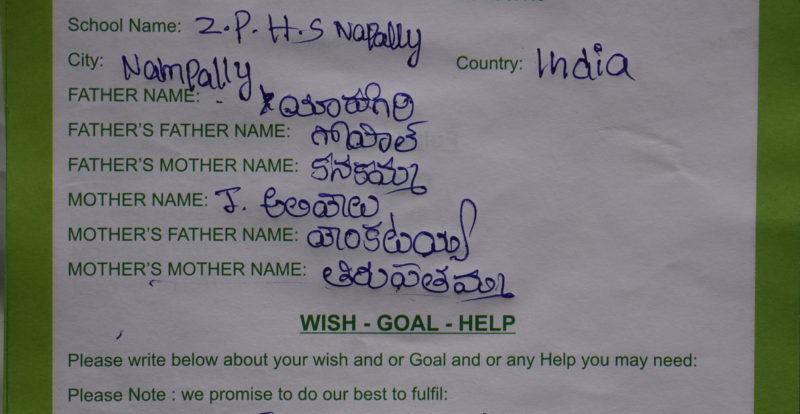 School Name: Z.P.H.S Napally
City: Nampally Country: India
FATHER NAME: యాదగిరి
FATHER'S FATHER NAME: గోపాల్
FATHER'S MOTHER NAME: కనకమ్మ
MOTHER NAME: J. అలివాలు
MOTHER'S FATHER NAME:
MOTHER'S MOTHER NAME: తిరుపతమ్మ
WISH - GOAL - HELP
Please write below about your wish and or Goal and or any Help you may need:
Please Note : we promise to do our best to fulfil: